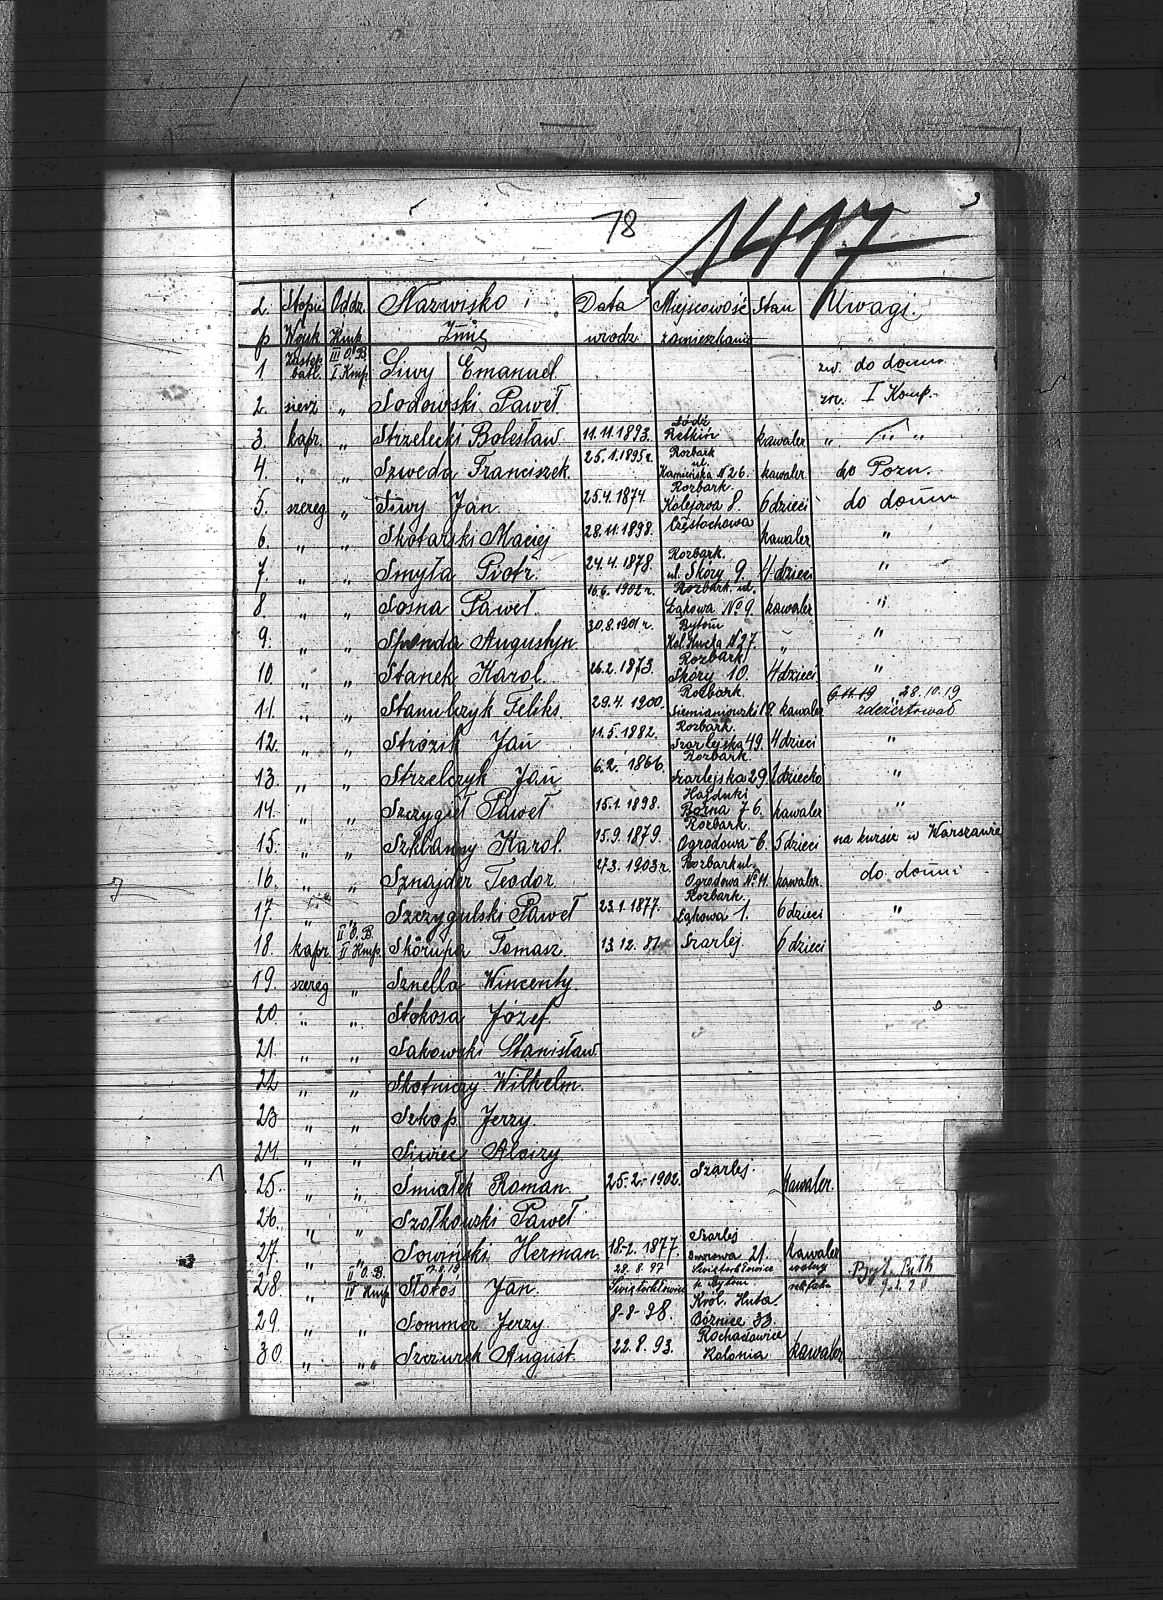 78
1417
L. Stopień Oddz. Nazwisko i Data Miejscowość Stan Uwagi.
p Wojsk Kmp. Imię urodz zamieszkania
1 Zastęp. batl. III O.B. I Kmp. Siwy Emanuel zw. do domu
2. sierż " Sodowski Paweł zw. I Komp.
3. kapr. " Strzelecki Bolesław 11.11.1893. Łódź Retkin kawaler " " "
4. " " Szweda Franciszek. 25.1.1895r. Rozbark ul. Kamieńska № 26. kawaler do Pozn.
5. szereg " Siwy Jan 25.4.1874 Rozbark. Kolejowa 8. 6 dzieci do domu
6. " " Skotarski Maciej 28.11.1898. Częstochowa kawaler "
7. " " Smyła Piotr. 24.4.1878. Rozbark. ul. Skóry 9. 4 dzieci "
8. " " Sosna Paweł. 16.6.1902r. Rozbark. ul. Łąkowa № 9. kawaler "
9. " " Sponda Augustyn. 30.8.1901r. Bytom Kol. Hucka № 27. " "
10 " " Stanek Karol. 26.2.1873. Rozbark. Skóry 10. 4 dzieci "
11. " " Stanulczyk Feliks. 29.4.1900. Rozbark. Siemianowski 19. kawaler 6.11.19 28.10.19 zdezertował
12. " " Strózik Jan 11.5.1882. Rozbark. Szarlejska 49. 4 dzieci "
13. " " Strzelczyk Jan 6.2.1866. Rozbark. Szarlejska 29. 1 dziecko "
14. " " Szczygieł Paweł 15.1.1898. Hajduki Bożna 76. kawaler "
15. " " Szklanny Karol. 15.9.1879. Rozbark. Ogrodowa 6. 5 dzieci na kursie w Warszawie
16. " " Sznajder Teodor 27.3.1903r. Rozbark ul. Ogrodowa № 11. kawaler. do domu
17. " " Szczygulski Paweł 23.1.1877. Rozbark. Łąkowa 1. 6 dzieci "
18. kapr. II O.B. II Kmp. Skórupa Tomasz. 13.12.81. Szarlej. 6 dzieci
19. szereg " Sznella Wincenty.
20. " " Stokosa Józef.
21. " " Sakowski Stanisław.
22 " " Skotniczy Wilhelm.
23 " " Szkop Jerzy.
24. " " Siwiec Alojzy
25. " " Śmiałek Roman. 25.2.1902. Szarlej. kawaler.
26. " " Szołkowski Paweł
27. " " Sowiński Herman. 18.2.1877. Szarlej Dworowa 21. kawaler
28. " II O.B. IV Kmp. Słotoś Jan. 28.8.97 Świętochłowice Świętochłowice p. Bytom wolny Byt. Pułk 9.2.20
29. " " Sommer Jerzy. 8-8-98. Król. Huta. Bóżnice 33.
30. " " Szczurek August. 22.8.93. Kochadowice Kolonia. kawaler